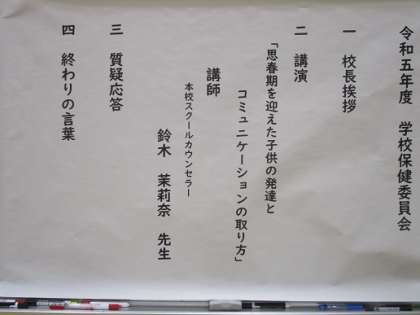 令和五年度 学校保健委員会
一 校長挨拶
二 講演
「思春期を迎えた子供の発達と
コミュニケーションの取り方」
講師
本校スクールカウンセラー
鈴木 茉莉奈 先生
三 質疑応答
四 終わりの言葉